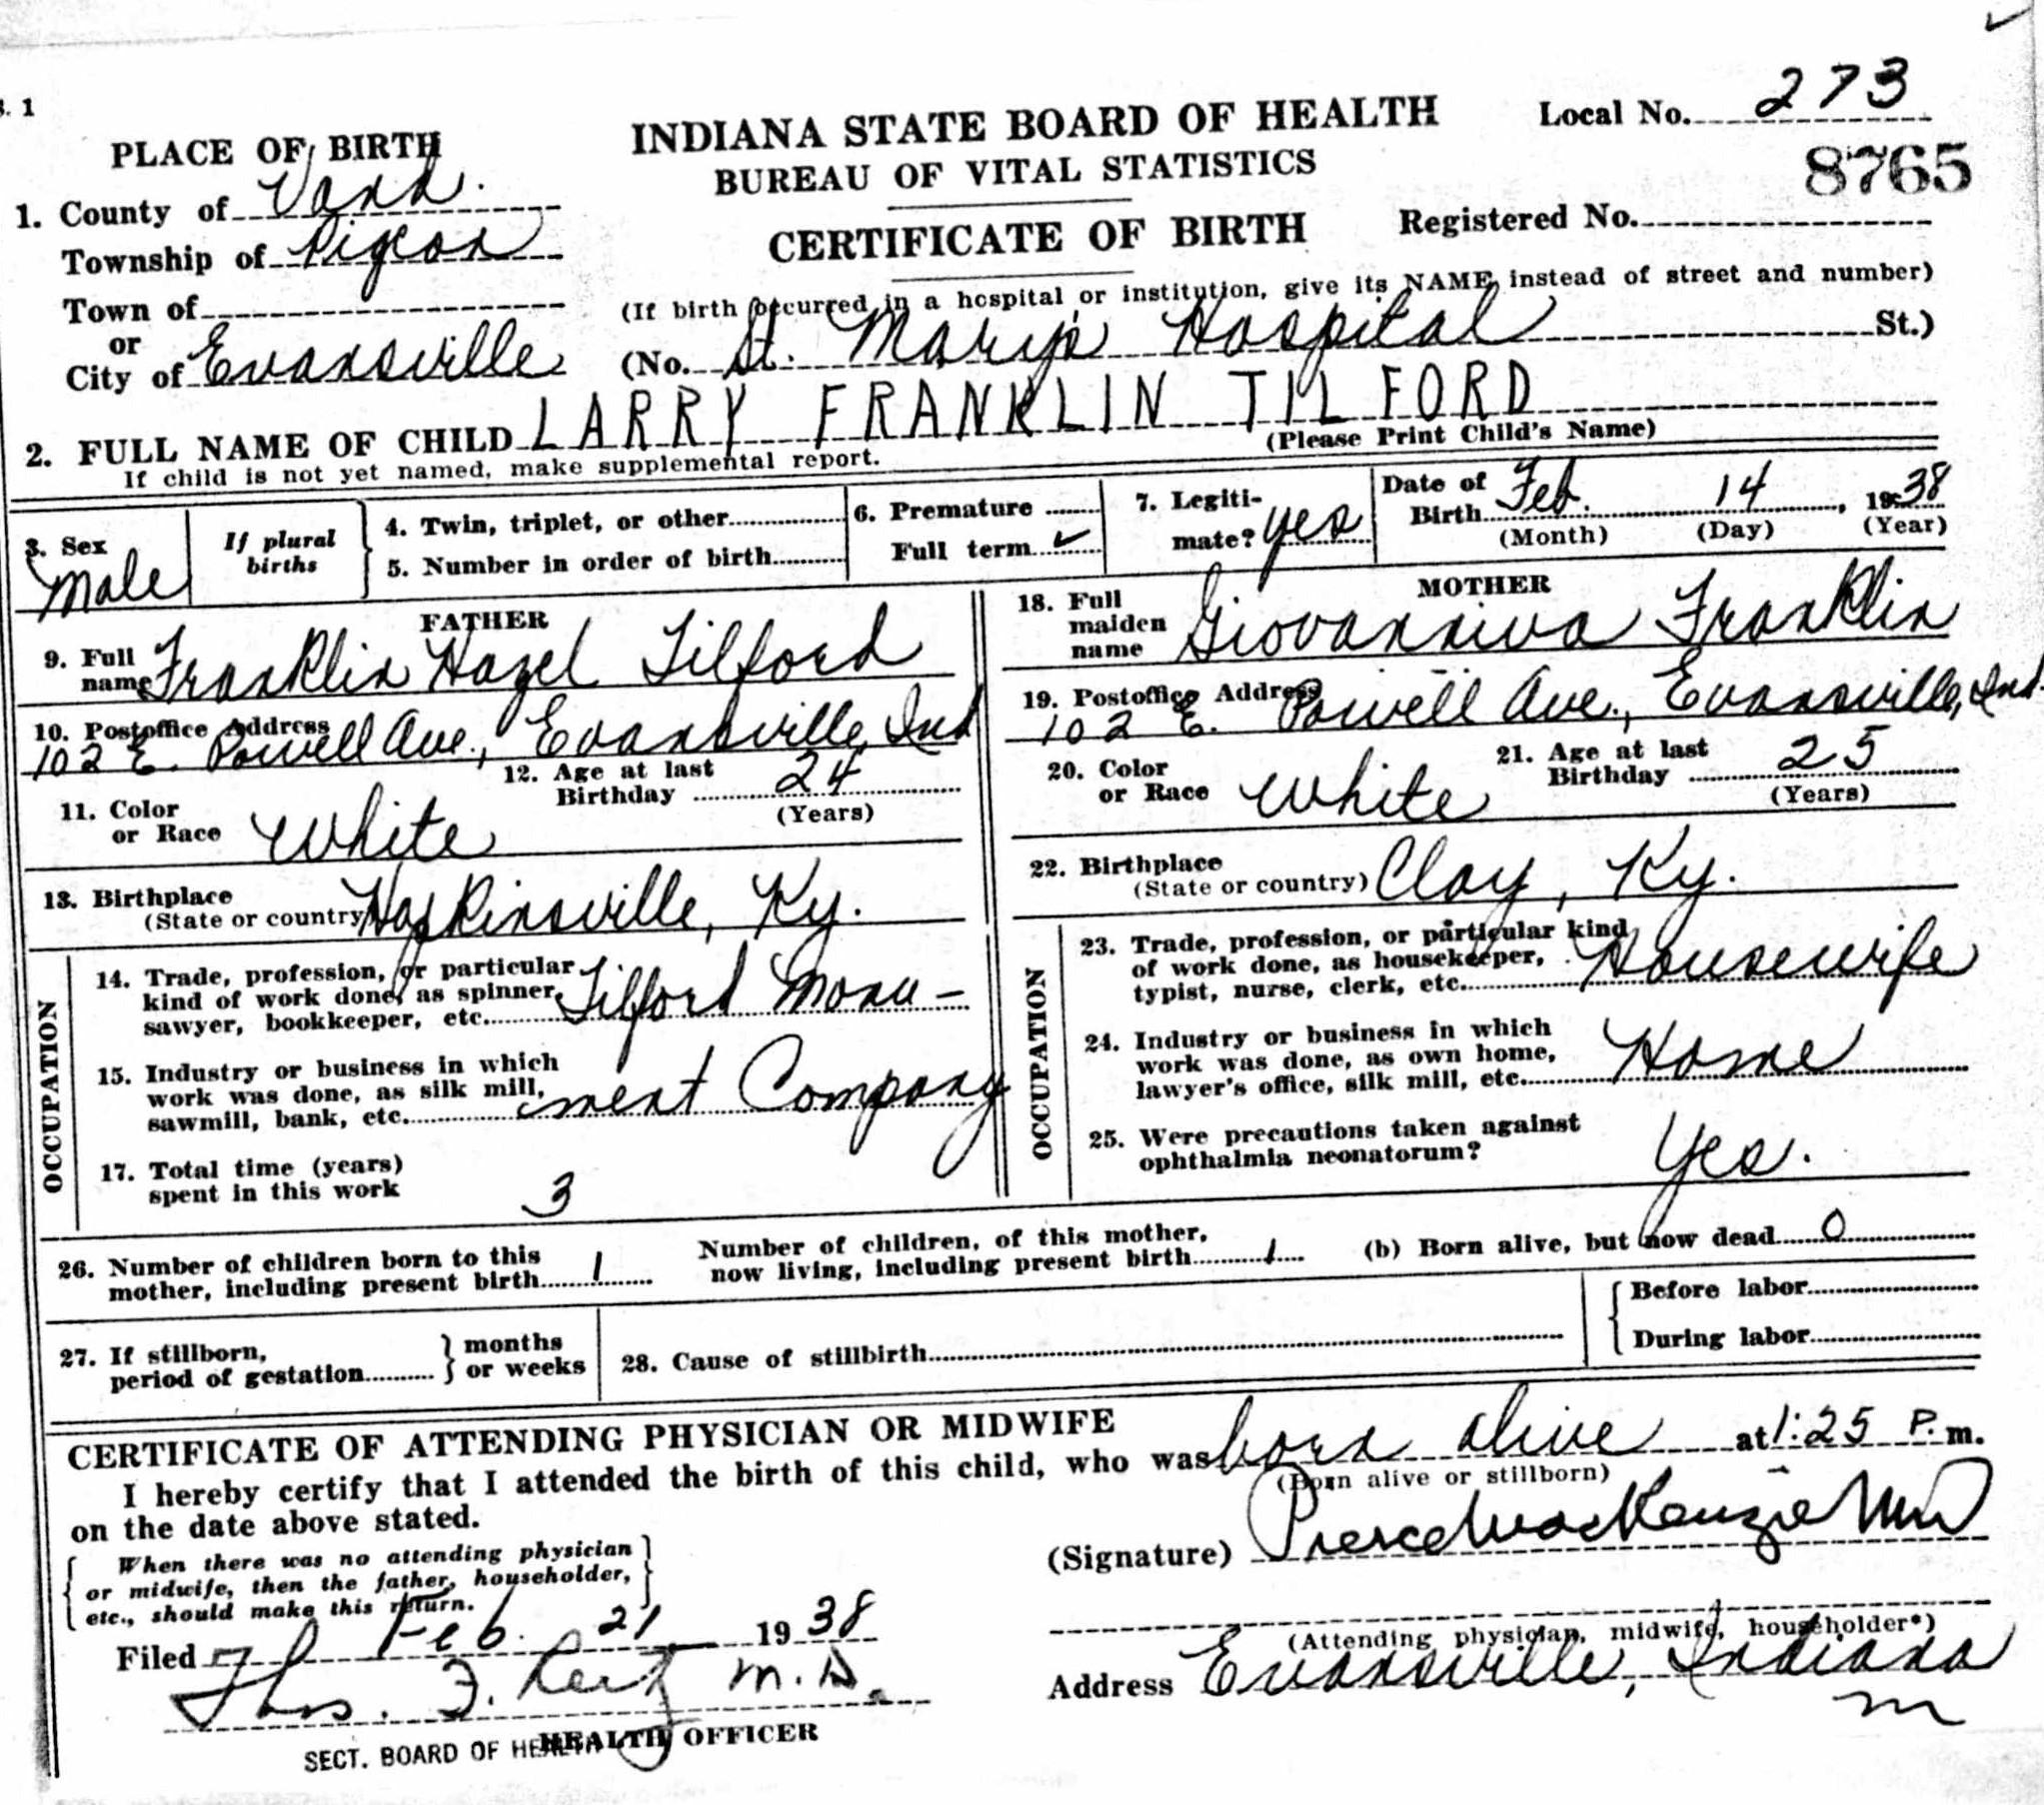 S. 1
PLACE OF BIRTH
INDIANA STATE BOARD OF HEALTH
BUREAU OF VITAL STATISTICS
CERTIFICATE OF BIRTH
Local No. 273
8765
Registered No.
1. County of Vand.
Township of Pigeon
Town of
or
City of Evansville
(If birth occurred in a hospital or institution, give its NAME instead of street and number)
(No. St. Mary's Hospital St.)
2. FULL NAME OF CHILD LARRY FRANKLIN TILFORD
(Please Print Child's Name)
If child is not yet named, make supplemental report.
3. Sex
Male
If plural
births
4. Twin, triplet, or other
5. Number in order of birth
6. Premature
Full term ✓
7. Legiti-
mate? yes
Date of
Birth Feb. 14, 1938
(Month) (Day) (Year)
FATHER
9. Full
name Franklin Hazel Tilford
10. Postoffice Address
102 E. Powell Ave., Evansville, Ind
11. Color
or Race White
12. Age at last
Birthday 24
(Years)
13. Birthplace
(State or country) Hopkinsville, Ky.
OCCUPATION
14. Trade, profession, or particular
kind of work done, as spinner,
sawyer, bookkeeper, etc. Tilford Monu-
15. Industry or business in which
work was done, as silk mill,
sawmill, bank, etc. ment Company
17. Total time (years)
spent in this work 3
MOTHER
18. Full
maiden
name Giovanniva Franklin
19. Postoffice Address
102 E. Powell Ave., Evansville, Ind.
20. Color
or Race White
21. Age at last
Birthday 25
(Years)
22. Birthplace
(State or country) Clay, Ky.
OCCUPATION
23. Trade, profession, or particular kind
of work done, as housekeeper,
typist, nurse, clerk, etc. Housewife
24. Industry or business in which
work was done, as own home,
lawyer's office, silk mill, etc. Home
25. Were precautions taken against
ophthalmia neonatorum? Yes.
26. Number of children born to this
mother, including present birth 1
Number of children, of this mother,
now living, including present birth 1
(b) Born alive, but now dead 0
27. If stillborn,
period of gestation
months
or weeks
28. Cause of stillbirth
Before labor
During labor
CERTIFICATE OF ATTENDING PHYSICIAN OR MIDWIFE
I hereby certify that I attended the birth of this child, who was born alive at 1:25 P. m.
(Born alive or stillborn)
on the date above stated.
When there was no attending physician
or midwife, then the father, householder,
etc., should make this return.
(Signature) Pierce MacKenzie MD
(Attending physician, midwife, householder*)
Filed Feb. 21 1938
Thos. F. Reitz M.D.
HEALTH OFFICER
SECT. BOARD OF HEALTH
Address Evansville, Indiana
m